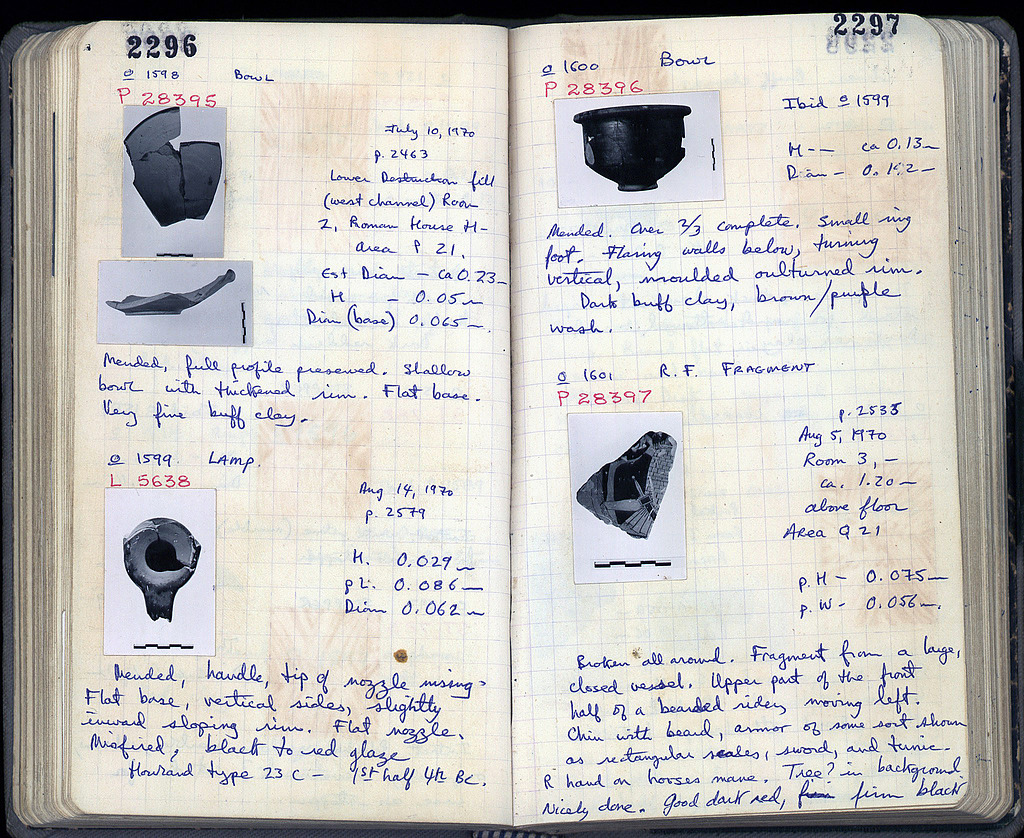 2296
o 1598 BOWL
P 28395
July 10, 1970
p. 2463
Lower Destruction fill
(west channel) Room
2, Roman House H-
area P 21.
Est Diam - ca 0.23
H - 0.05 m
Diam (base) 0.065 -.
Mended, full profile preserved. Shallow
bowl with thickened rim. Flat base.
Very fine buff clay.
o 1599. LAMP.
L 5638
Aug 14, 1970
p. 2579
H. 0.029 m
pL. 0.086 m
Diam 0.062 m
Mended, handle, tip of nozzle missing.
Flat base, vertical sides, slightly
inward sloping rim. Flat nozzle.
Misfired, black to red glaze
Howland type 23 C - 1st half 4th BC.
2297
o 1600 BOWL
P 28396
Ibid o 1599
H -- ca 0.13 m
Diam - 0.192 -
Mended. Over 2/3 complete. Small ring
foot. Flaring walls below, turning
vertical, moulded outturned rim.
Dark buff clay, brown/purple
wash.
o 1601 R.F. FRAGMENT
P 28397
p. 2535
Aug 5, 1970
Room 3, -
ca. 1.20 m
above floor
Area Q 21
p. H - 0.075 m
p. W - 0.056 m.
Broken all around. Fragment from a large,
closed vessel. Upper part of the front
half of a bearded rider, moving left.
Chin with beard, armor of some sort shown
as rectangular scales, sword, and tunic.
R hand on horses mane. Tree? in background
Nicely done. Good dark red, firm firm black